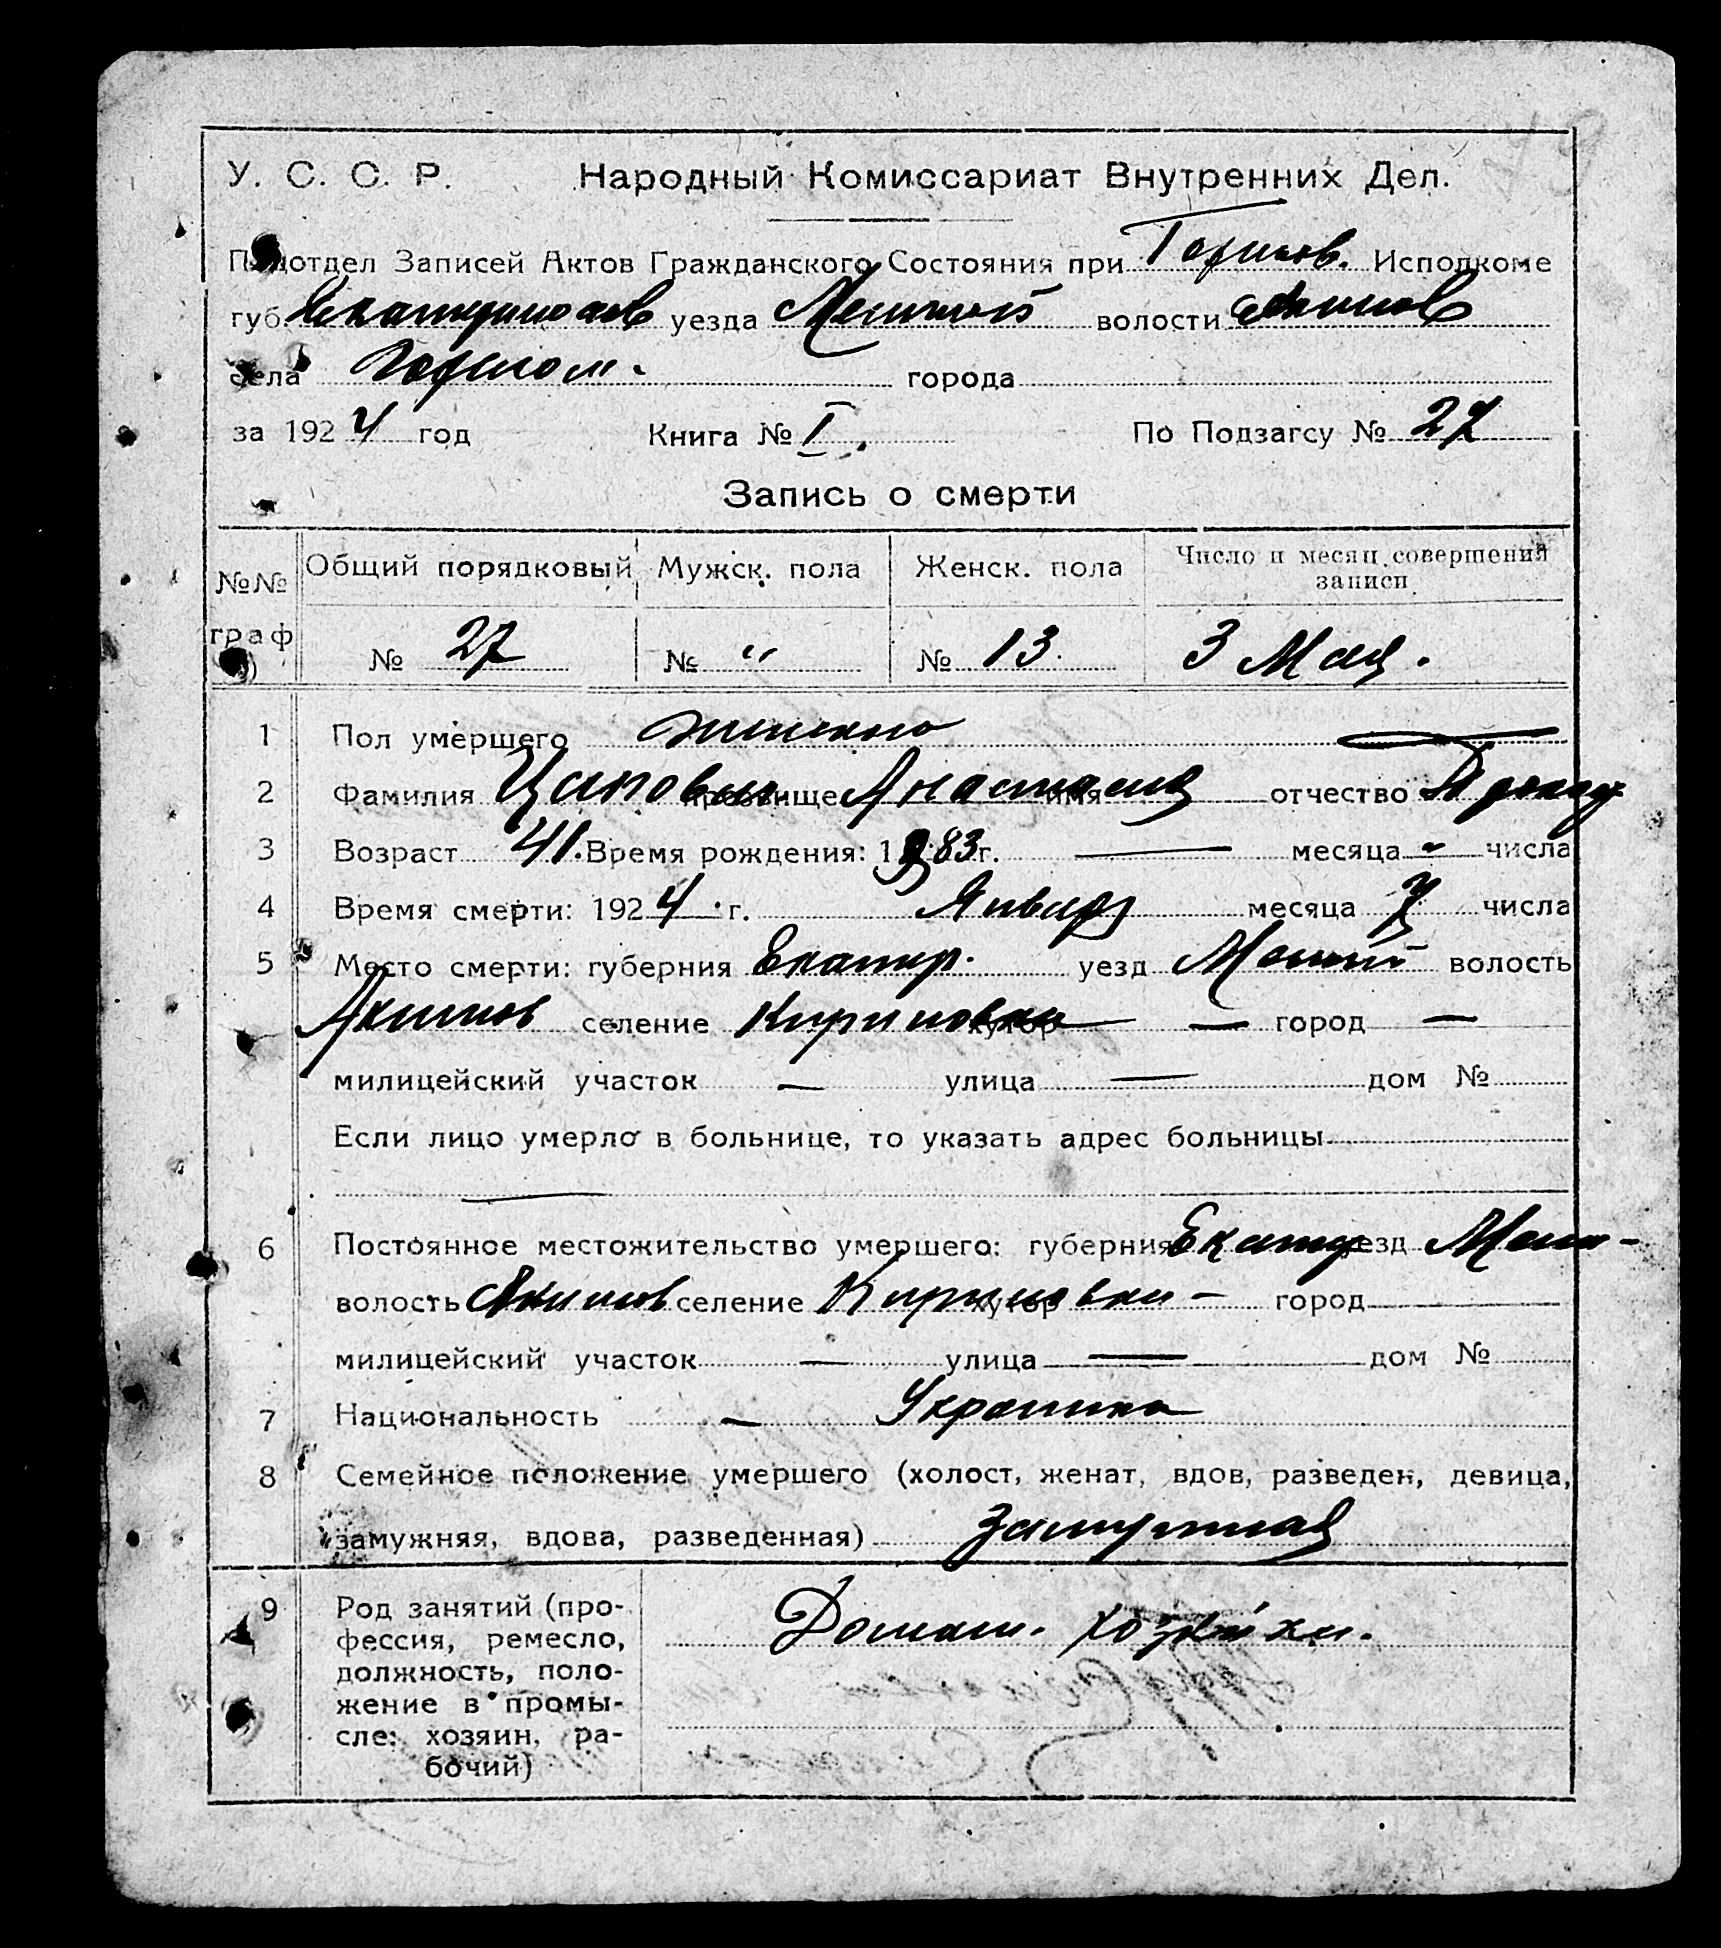 У. С. С. Р. Народный Комиссариат Внутренних Дел.
Подотдел Записей Актов Гражданского Состояния при Исполкоме
губ. Екатеринослав уезда волости Акимов
села города
за 1924 год Книга № I. По Подзагсу № 27
Запись о смерти
№№ граф Общий порядковый Мужск. пола Женск. пола Число и месяц совершения записи
№ 27 № „ № 13. 3 Мая.
1 Пол умершего женского
2 Фамилия прозвище Анастасия имя отчество
3 Возраст 41. Время рождения: 1883 г. — месяца - числа
4 Время смерти: 1924 г. Января месяца 7 числа
5 Место смерти: губерния Екатер. уезд волость
Акимов селение Кириловки хутор — город —
милицейский участок — улица — дом №
Если лицо умерло в больнице, то указать адрес больницы
—
6 Постоянное местожительство умершего: губерния Екатер уезд
волость Акимов селение Кириловки хутор — город
милицейский участок — улица — дом №
7 Национальность — Украинка
8 Семейное положение умершего (холост, женат, вдов, разведен, девица,
замужняя, вдова, разведенная) Замужняя
9 Род занятий (про-
фессия, ремесло,
должность, поло-
жение в промы-
сле: хозяин, ра-
бочий)
Домаш. хозяйки.